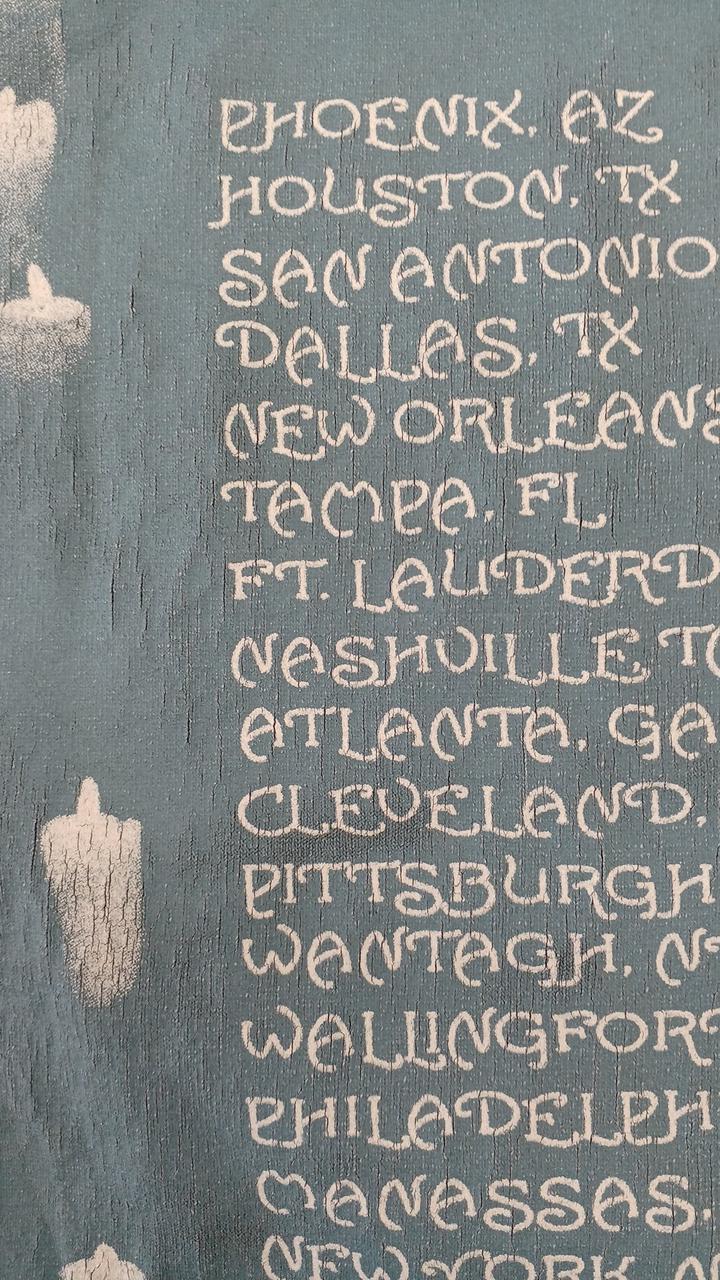 PHOENIX, AZ
HOUSTON, TX
SAN ANTONIO
DALLAS, TX
NEW ORLEANS
TAMPA, FL
FT. LAUDERD
NASHVILLE T
ATLANTA, GA
CLEVELAND,
PITTSBURGH
WANTAGH, N
WALLINGFOR
PHILADELPH
MANASSAS,
NEW YORK, N